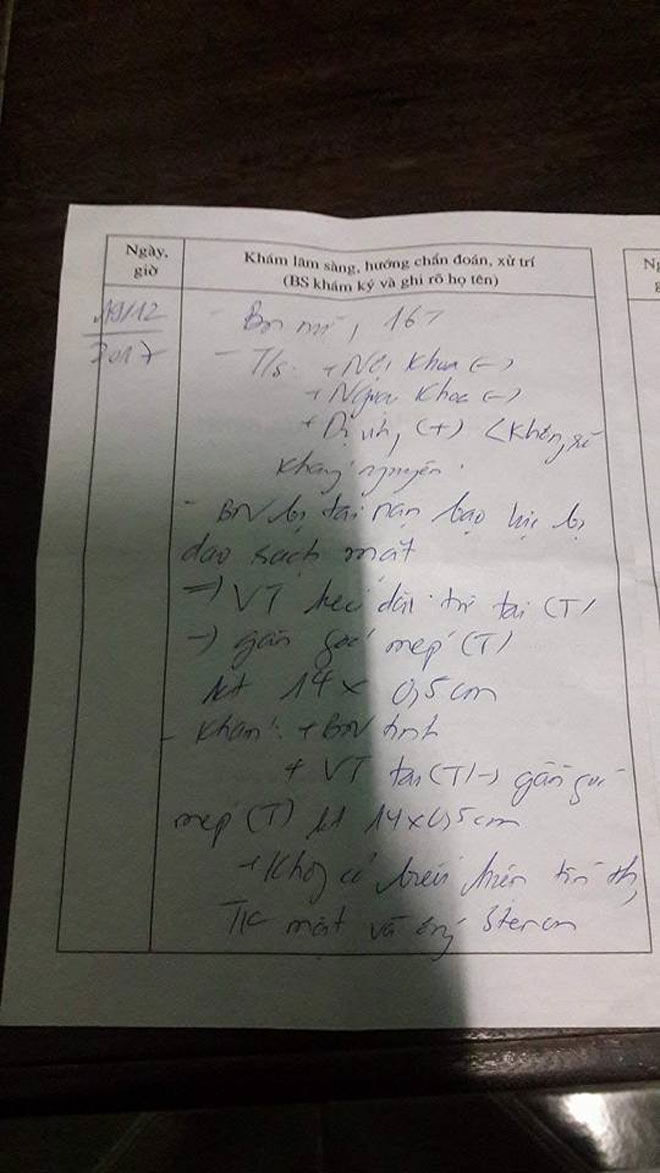 Ngày,
giờ
Khám lâm sàng, hướng chẩn đoán, xử trí
(BS khám ký và ghi rõ họ tên)
Ng
g
19/12
2017
- BN nữ, 16T
- T/s: + Nội khoa (-)
+ Ngoại khoa (-)
+ Dị ứng (+) (không rõ
kháng nguyên
- BN bị tai nạn bạo lực bị
dao rạch mặt
=> VT kéo dài từ tai (T)
-> gần góc mép (T)
kt 14 x 0,5cm
- Khám: + BN tỉnh
+ VT tai (T) -> gần góc
mép (T) kt 14x0,5cm
+ Không có biểu hiện tổn th
TK mặt và ống Stenon